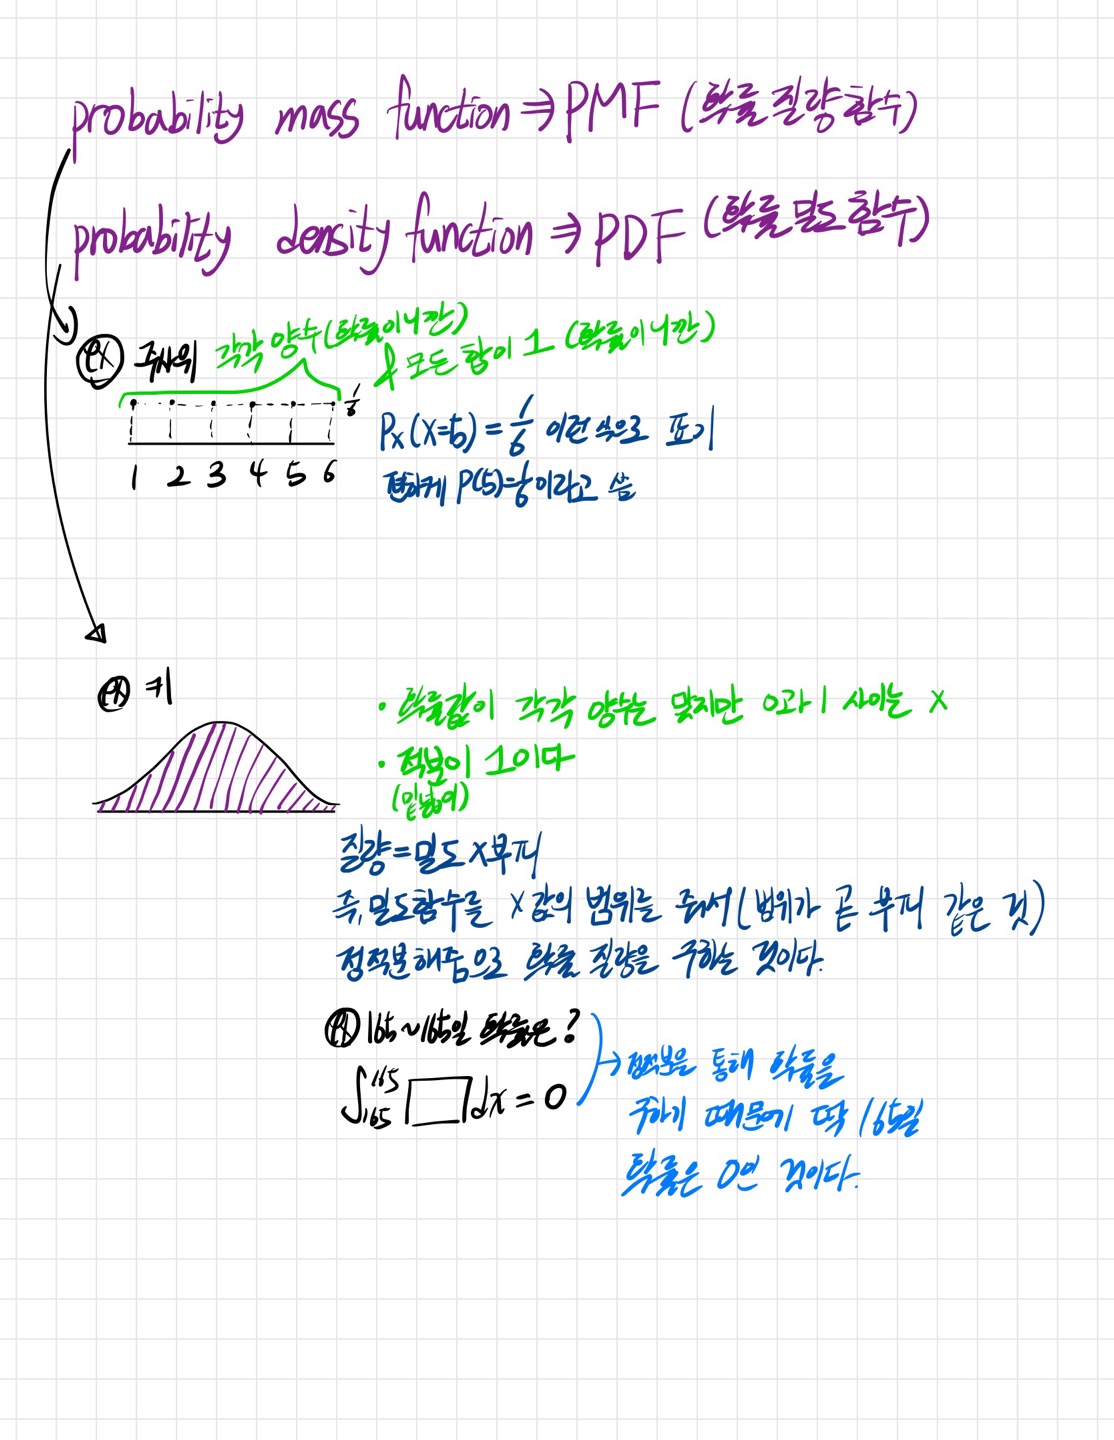 probability mass function ⇒ PMF (확률 질량 함수)
probability density function ⇒ PDF (확률 밀도 함수)
ex 주사위 각각 양수(확률이니깐)
& 모든 합이 1 (확률이니깐)
1/6
1 2 3 4 5 6
Px(X=5) = 1/6 이런 식으로 표기
편하게 P(5)=1/6이라고 씀
ex 키
· 확률값이 각각 양수는 맞지만 0과 1 사이는 X
· 적분이 1이다
(밑넓이)
질량=밀도×부피
즉, 밀도함수를 X값의 범위를 줘서(범위가 곧 부피 같은 것)
정적분해줌으로 확률 질량을 구하는 것이다.
ex 165~165일 확률은?
∫₁₆₅¹⁶⁵ □ dx = 0
→ 정적분을 통해 확률을
구하기 때문에 딱 165일
확률은 0인 것이다.